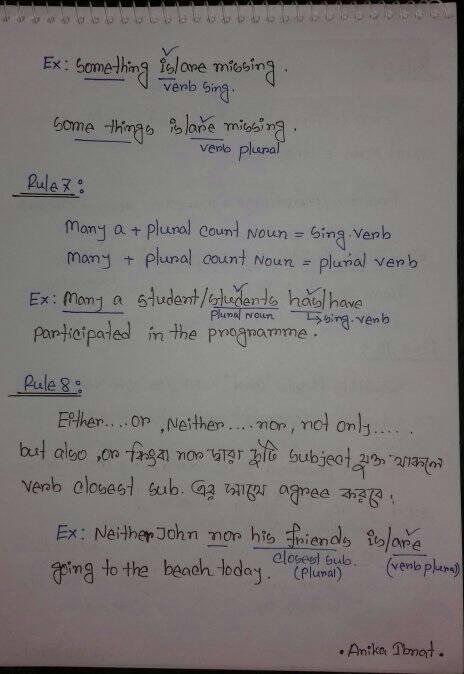 Ex: Something is/are missing.
verb sing.
Some things is/are missing.
verb plural
Rule 7:
Many a + plural count Noun = sing. verb
Many + plural count Noun = plural verb
Ex: Many a student/students has/have
Plural Noun sing. verb
participated in the programme.
Rule 8:
Either....or, Neither....nor, not only.....
but also, or কিংবা nor দ্বারা দুটি subject যুক্ত থাকলে
verb closest sub. এর সাথে agree করবে।
Ex: Neither John nor his friends is/are
closest sub. (verb plural)
going to the beach today. (Plural)
• Anika Ibnat •